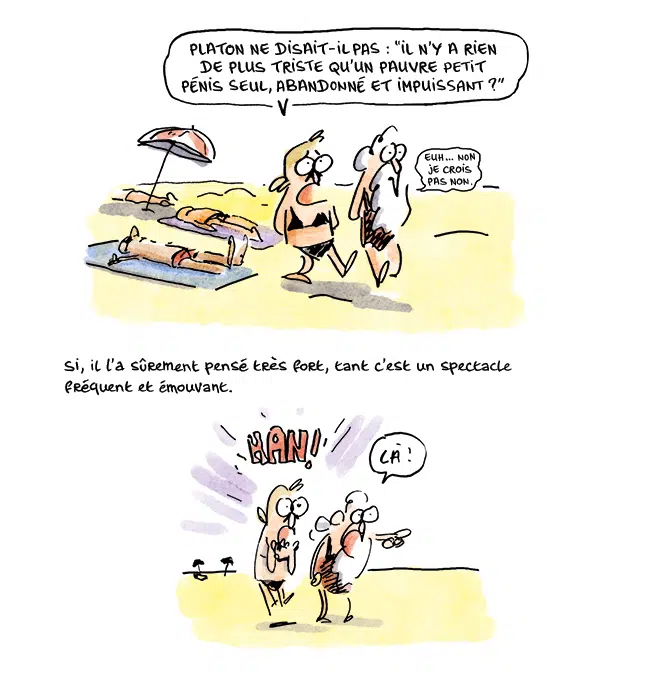 PLATON NE DISAIT-IL PAS : "IL N'Y A RIEN
DE PLUS TRISTE QU'UN PAUVRE PETIT
PÉNIS SEUL, ABANDONNÉ ET IMPUISSANT ?"
EUH... NON
JE CROIS
PAS NON.
Si, il l'a sûrement pensé très fort, tant c'est un spectacle
fréquent et émouvant.
HAN!
LÀ !